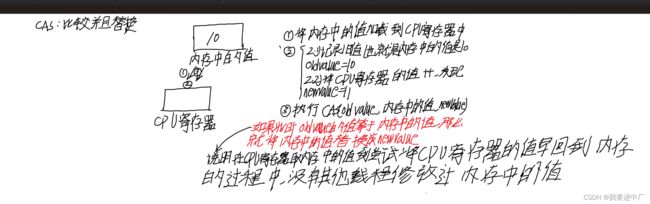 CAS:比较并且替换
10
内存中的值
①
②
CPU寄存器
①将内存中的值加载到CPU寄存器中
② 2.1)记录旧值,也就是内存中的值10
oldvalue=10
2.2)将CPU寄存器的值++,来记
newvalue=11
③执行CAS(oldvalue,内存中的值,newvalue)
如果此时oldvalue的值等于内存中的值,那么
就将内存中的值替换成newvalue
说明在CPU寄存器内存中的值到尝试将CPU寄存器的值写回到内存
的过程中,没有其他线程修改过内存中的值
CSDN @我要进中厂